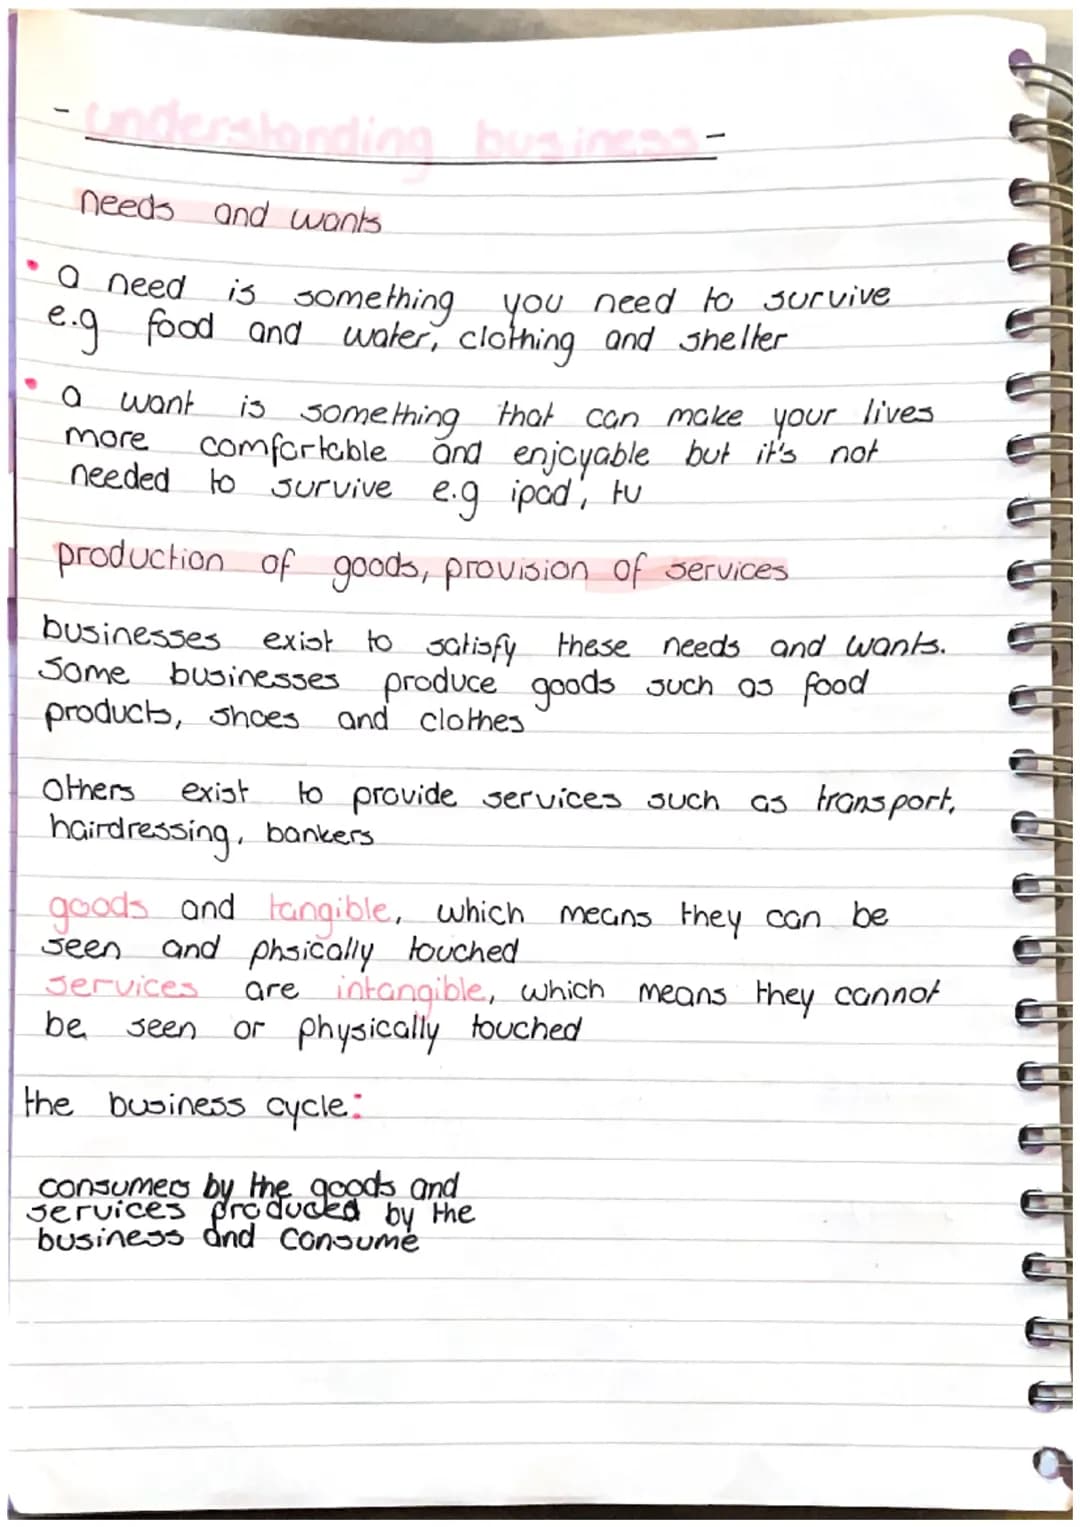 - understanding business -
needs and wants
• a need is something you need to survive
e.g food and water, clothing and shelter
• a want is something that can make your lives
more comfortable and enjoyable but it's not
needed to survive e.g ipad, tv
production of goods, provision of services
businesses exist to satisfy these needs and wants.
Some businesses produce goods such as food
products, shoes and clothes
Others exist to provide services such as transport,
hairdressing, bankers
goods and tangible, which means they can be
seen and phsically touched
services are intangible, which means they cannot
be seen or physically touched
the business cycle:
consumers by the goods and
services produced by the
business and consume